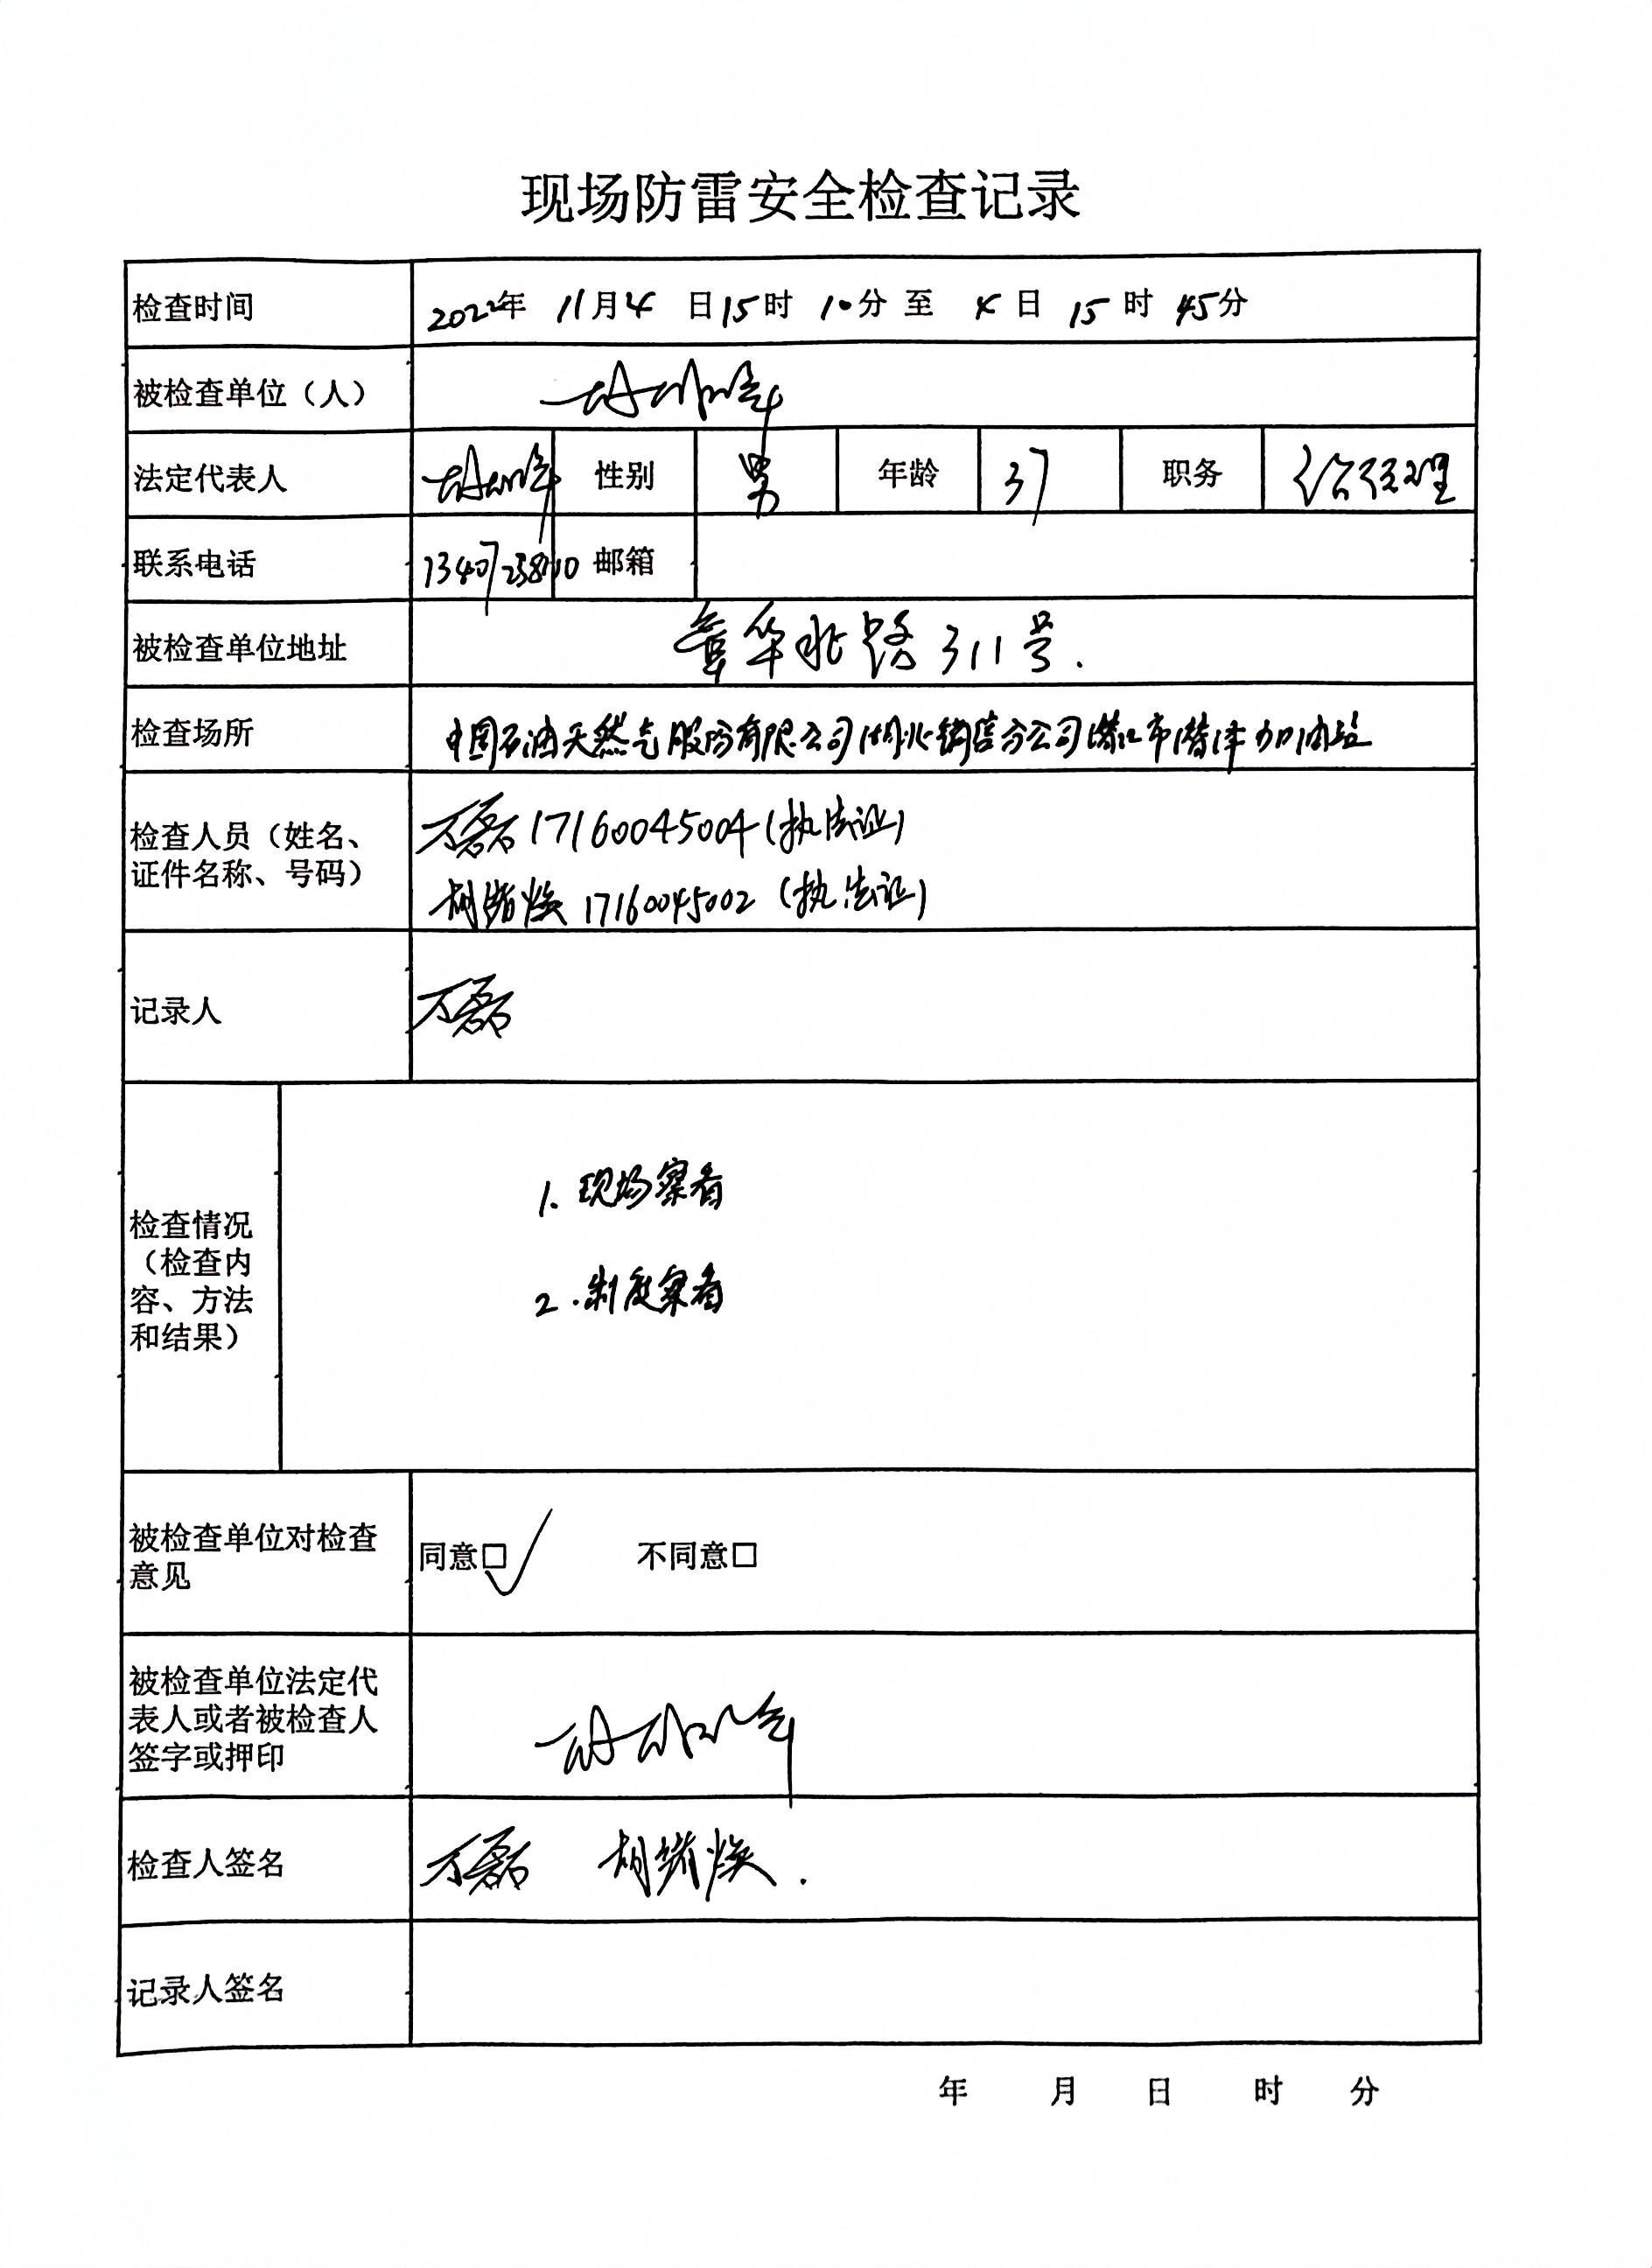 现场防雷安全检查记录
检查时间 2022年 11月4 日15时 10分 至 4日 15时 45分
被检查单位（人）
法定代表人 性别 男 年龄 37 职务 经理
联系电话 邮箱
被检查单位地址 章华北路311号.
检查场所 中国石油天然气股份有限公司湖北销售分公司潜江市潜泽加油站
检查人员（姓名、
证件名称、号码）
万磊17160045004(执法证)
胡绪焕17160045002(执法证)
记录人 万磊
检查情况
（检查内
容、方法
和结果）
1.现场察看
2.制度察看
被检查单位对检查
意见
同意□√ 不同意□
被检查单位法定代
表人或者被检查人
签字或押印
检查人签名 万磊 胡绪焕.
记录人签名
年 月 日 时 分